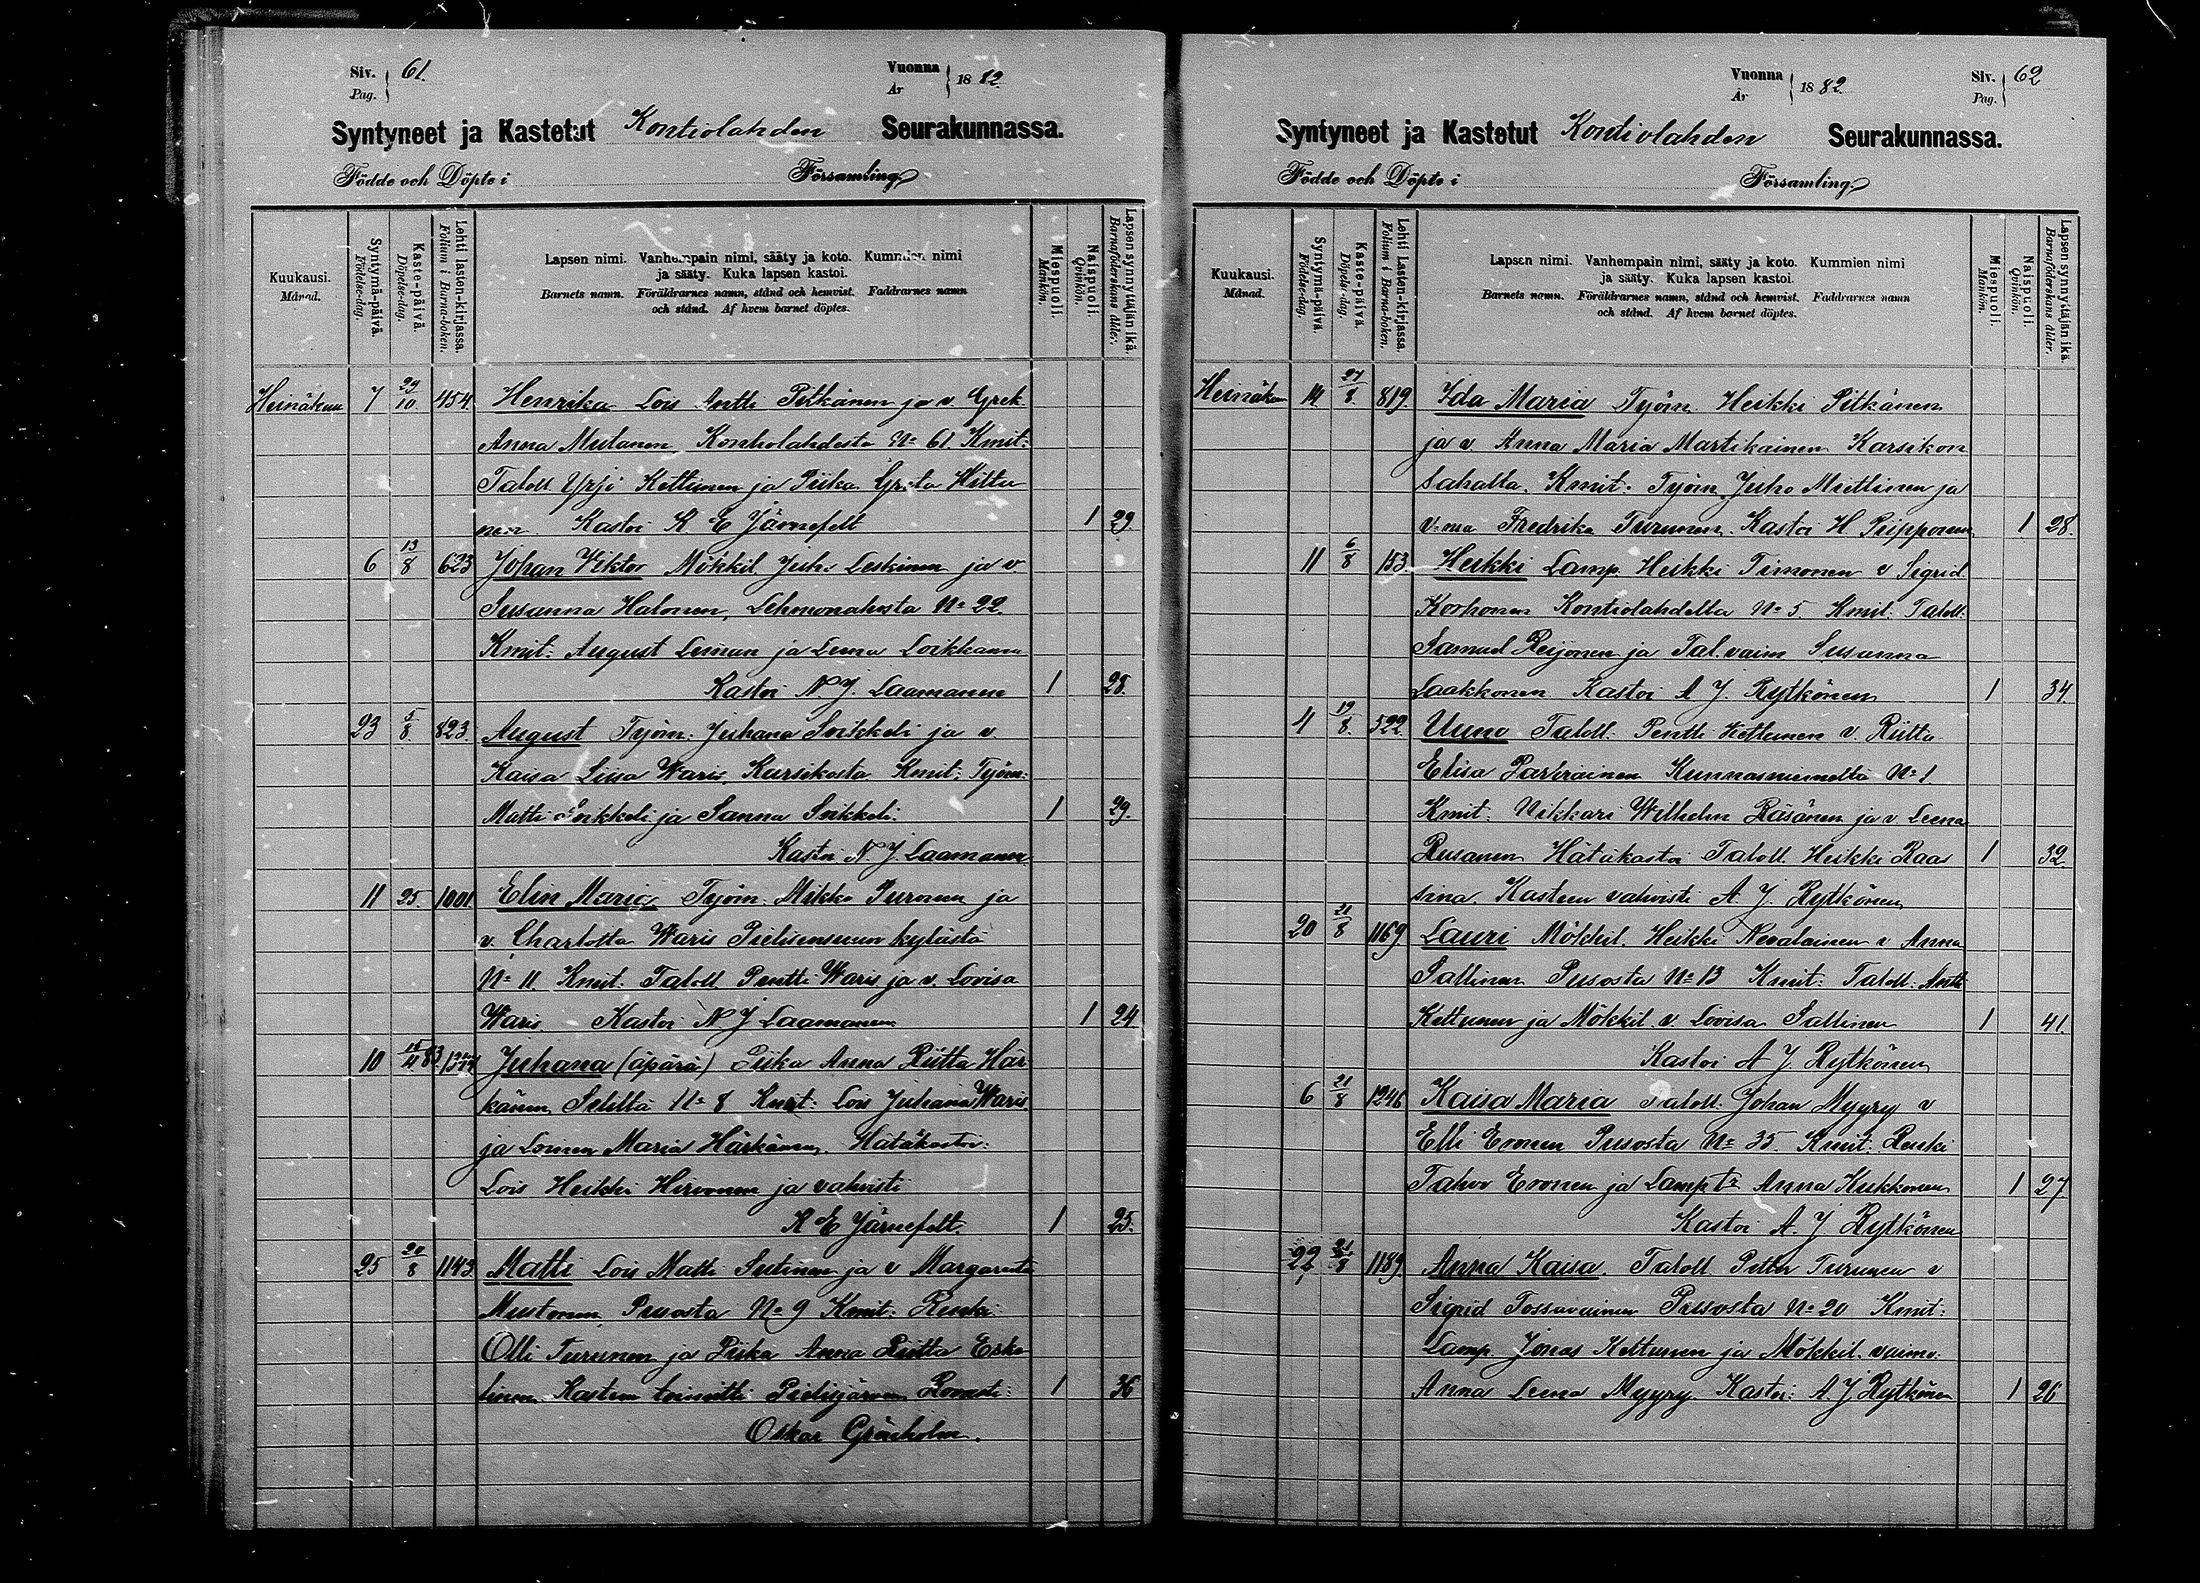 Siv. 61. Vuonna 1882.
Pag. År
Syntyneet ja Kastetut Kontiolahden Seurakunnassa.
Födde och Döpte i Församling
Kuukausi.
Månad.
Syntymä-päivä.
Födelse-dag.
Kaste-päivä.
Döpelse-dag.
Lehti lasten-kirjassa.
Folium i Barna-boken.
Lapsen nimi. Vanhempain nimi, sääty ja koto. Kummien nimi
ja sääty. Kuka lapsen kastoi.
Barnets namn. Föräldrarnes namn, stånd och hemvist. Faddrarnes namn
och stånd. Af hvem barnet döptes.
Miespuoli.
Mankön.
Naispuoli.
Qvinkön.
Lapsen synnyttäjän ikä.
Barnaföderskans ålder.
Heinäkuu 7 29/10 454 Henrika Lois Antti Pitkänen ja v Gret
Anna Mutanen Kontiolahdesta No 61. Kmit:
Taloll Yrjö Kettunen ja Piika Greta Hiltu
nen Kastoi K. E Järnefelt 1 29
6 13/8 623 Johan Viktor Mökkil. Juh. Leskinen ja v.
Susanna Halonen, Lehmonahosta No 22.
Kmit: August Leinun ja Leena Loikkanen
Kastoi N J. Laamanen 1 28.
23 5/8 823. August Työm: Juhana Sikkeli ja v
Kaisa Liisa Waris, Karsikosta Kmit: Työm:
Matti Sikkeli ja Sanna Sikkeli. 1 29.
Kastoi N J. Laamanen
11 25. 1001. Elin Maria Työm. Mikko Turunen ja
v. Charlotta Waris Pielisensuun kylästä
No 11. Kmit. Taloll. Pentti Waris ja v. Lovisa
Waris Kastoi N J Laamanen 1 24
10 Juhana (äpärä) Piika Anna Riitta Här
känen Seliltä No 8 Kmit: Lois Juhana Waris
ja Loinen Maria Härkänen. Hätäkastoi:
Lois Heikki Hirvonen ja vahvisti
K E Järnefelt. 1 25.
25 20/8 1143. Matti Lois Matti Sutinen ja v Margareeta
Mustonen, Pusosta No 9 Kmit: Renki
Olli Turunen ja Piika Anna Riitta Eske
linen. Kasteen toimitti Pielisjärven Rovasti: 1 36
Oskar Gräsholm.
Vuonna 1882. Siv. 62
År Pag.
Syntyneet ja Kastetut Kontiolahden Seurakunnassa.
Födde och Döpte i Församling
Kuukausi.
Månad.
Syntymä-päivä.
Födelse-dag.
Kaste-päivä.
Döpelse-dag.
Lehti Lasten-kirjassa.
Folium i Barna-boken.
Lapsen nimi. Vanhempain nimi, sääty ja koto. Kummien nimi
ja sääty. Kuka lapsen kastoi.
Barnets namn. Föräldrarnes namn, stånd och hemvist. Faddrarnes namn
och stånd. Af hvem barnet döptes.
Miespuoli.
Mankön.
Naispuoli.
Qvinkön.
Lapsen synnyttäjän ikä
Barnaföderskans ålder.
Heinäkuu 14. 27/8. 819. Ida Maria Työm. Heikki Pitkänen
ja v. Anna Maria Martikainen Karsikon
sahalta. Kmit: Työm. Juho Miettinen ja
v:nsa Fredrika Turunen. Kastoi H. Piipponen 1 28.
11 6/8 153. Heikki Lamp. Heikki Timonen v Sigrid
Korhonen Kontiolahdelta No 5. Kmit. Taloll.
Samuel Reijonen ja Tal. vaim Susanna
Laakkonen Kastoi A J. Rytkönen 1 34.
4 19/8. 522. Uuno Taloll. Pentti Kettunen v. Riitta
Elisa Parviainen Kunnasniemeltä No 1
Kmit: Nikkari Wilhelm Räsänen ja v. Leena
Rusanen Hätäkastoi Taloll. Heikki Raas 1 32.
sina. Kasteen vahvisti A. J. Rytkönen
20 21/8 1169 Lauri Mökkil. Heikki Nevalainen v Anna
Sallinen Pusosta No 13 Kmit: Taloll. Antti
Kettunen ja Mökkil. v. Lovisa Sallinen 1 41.
Kastoi A J. Rytkönen
6 21/8 1246 Kaisa Maria Taloll. Johan Myyry v
Elli Eronen Pusosta No 35. Kmit: Renki
Tahvo Eronen ja Lamp tr Anna Kukkonen 1 27
Kastoi A. J Rytkönen
22 21/8 1189. Anna Kaisa. Taloll. Petter Turunen v
Sigrid Tossavainen Pusosta No 20 Kmit:
Lamp. Jonas Kettunen ja Mökkil. vaimo.
Anna Leena Myyry. Kastoi: A. J Rytkönen 1 26